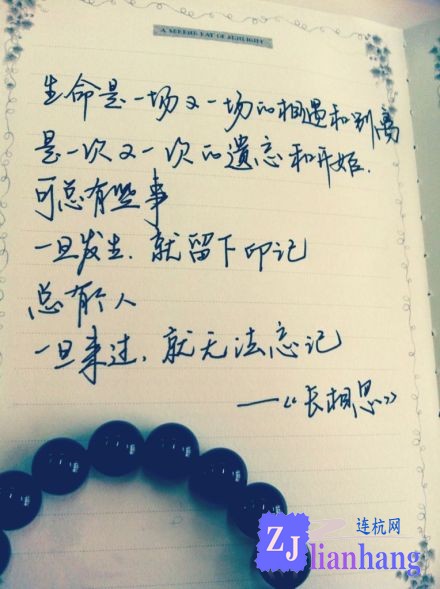 A SERENE RAY OF SUNLIGHT
生命是一场又一场的相遇和别离
是一次又一次的遗忘和开始.
可总有些事
一旦发生.就留下印记
总有个人
一旦来过,就无法忘记
—《长相思》
连杭网
ZJ lianhang